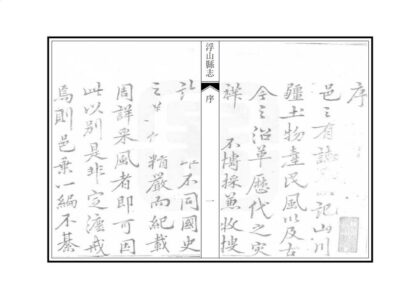 序
邑之有誌 記山川
疆土物產民風以及古
今之沿革歷代之灾
祥 不博採兼收搜
浮山縣志
序
一
訁 不同國史
之 精嚴而紀載
周詳采風者即可因
此以別是非定灋戒
焉則邑乗一編不綦